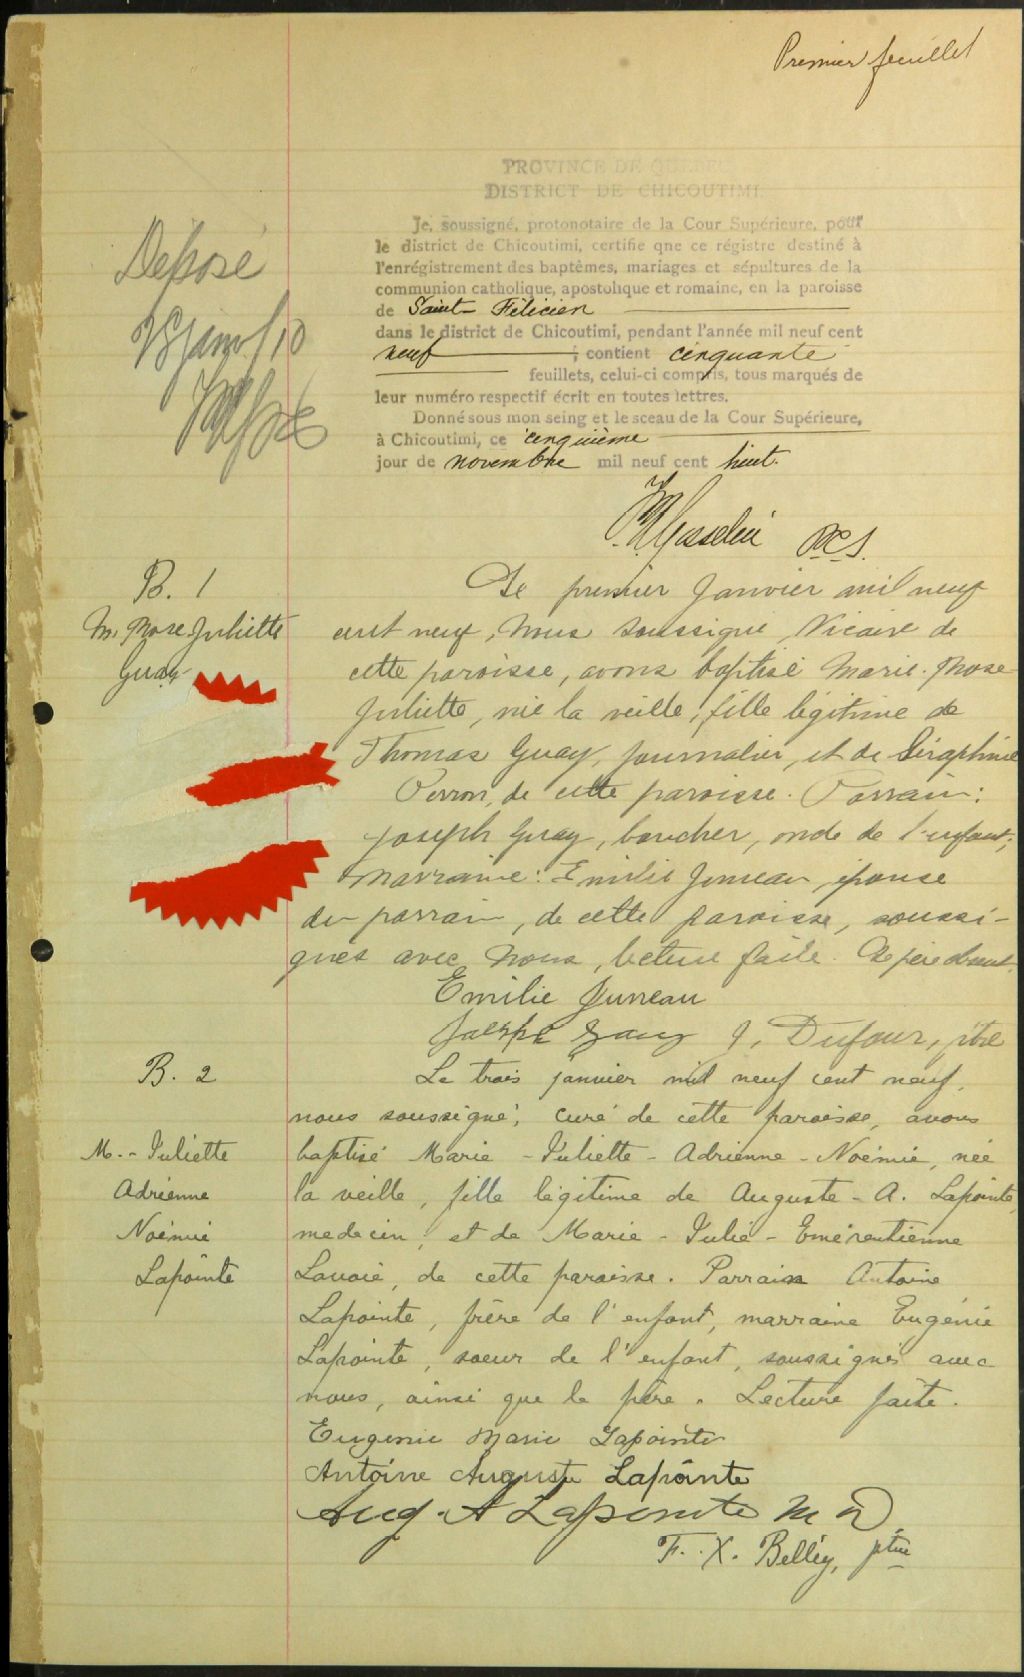 Premier feuillet
PROVINCE DE QUEBEC
DISTRICT DE CHICOUTIMI
Je, soussigné, protonotaire de la Cour Supérieure, pour
le district de Chicoutimi, certifie qne ce régistre destiné à
l'enrégistrement des baptêmes, mariages et sépultures de la
communion catholique, apostolique et romaine, en la paroisse
de Saint-Félicien
dans le district de Chicoutimi, pendant l'année mil neuf cent
neuf ; contient cinquante
feuillets, celui-ci compris, tous marqués de
leur numéro respectif écrit en toutes lettres.
Donné sous mon seing et le sceau de la Cour Supérieure,
à Chicoutimi, ce cinquième
jour de novembre mil neuf cent huit.
Déposé
P.C.S.
B. 1
M. Rose Juliette
Guay
Le premier Janvier mil neuf
cent neuf, Nous soussigné, Vicaire de
cette paroisse, avons baptisé Marie-Rose
Juliette, née la veille, fille légitime de
Thomas Guay, journalier, et de Séraphine
Perron, de cette paroisse. Parrain:
Joseph Guay, boucher, oncle de l'enfant;
marraine: Emilie Juneau, épouse
du parrain, de cette paroisse, soussi-
gnés avec Nous, lecture faite. Le père absent.
Emilie Juneau
Joseph Guay J. Dufour, ptre
B. 2
M.-Juliette
Adrienne
Noémie
Lapointe
Le trois janvier mil neuf cent neuf,
nous soussigné, curé de cette paroisse, avons
baptisé Marie-Juliette-Adrienne-Noémie, née
la veille, fille légitime de Auguste-A. Lapointe,
medecin, et de Marie-Julie-Emérentienne
Lavoie, de cette paroisse. Parrain Antoine
Lapointe, frère de l'enfant, marraine Eugénie
Lapointe, soeur de l'enfant, soussignés avec
nous, ainsi que le père. Lecture faite.
Eugenie Marie Lapointe
Antoine Auguste Lapointe
Aug. A Lapointe M D
F. X. Belley, ptre